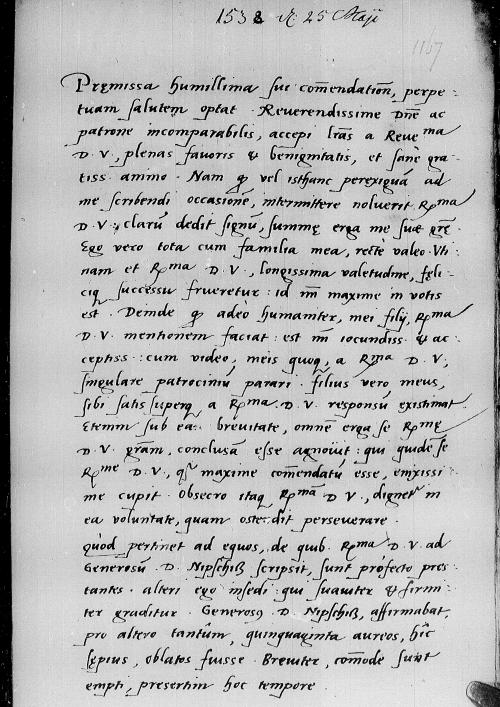 1538 d. 25 Maji
1157
Pręmissa humillima sui com̄endatiōn, perpe-
tuam salutem optat. Reverendissime Dn̄e ac
patrone incomparabilis, accepi lr̄as a Reveᵐᵃ
D. V., plenas favoris & benignitatis, et sanè gra-
tiss. animo. Nam qđ vel isthanc perexiguā ad
me scribendi occasionē, intermittere noluerit Rᵐᵃ
D. V., clarū dedit signū, summę erga me suæ gr̄ę.
Ego vero tota cum familia mea, rectè valeo. Vti-
nam et Rᵐᵃ D. V., longissima valetudine, fęli-
ciq̨ successu frueretur: id m̄ maxime in votis
est. Deinde qđ adeo humaniter, mei filij, Rᵐᵃ
D. V. mentionem faciat: est m̄ iocundiss. & ac-
ceptiss: cum video, meis quoq̨, a Rᵐᵃ D. V.,
singulare patrociniū parari. filius vero meus,
sibi satis superq̨ a Rᵐᵃ D. V. responsū existimat.
Etenim sub ea brevitate, omnē erga se Rᵐę
D. V. gr̄am, conclusā esse agnōvit: qui quidē se
Rᵐᵉ D. V., qš maxime com̄endatū esse, enixissi-
me cupit. Obsecro itaq̨ Rᵐᵃ̄ D. V., dignetʳ in
ea voluntate, quam ostendit perseverare.
Quòd pertinet ad equos, de quib. Rᵐᵃ D. V. ad
Generosū D. Nipschiß scripsit, sunt profecto pres-
tantes. alteri ego insedi: qui suaviter & firmi-
ter graditur. Generosꝰ D. Nipschiß, affirmabat,
pro altero tantūm, quinquaginta aureos, hîc
sępius, oblatos fuisse. Breviter, com̄ode sunt
empti, presertim hoc tempore.